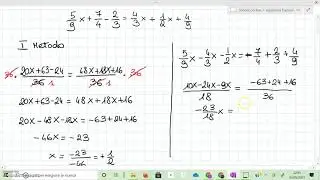 5/9 x + 7/4 - 2/3 = 4/3 x + 1/2 x + 4/9
I Metodo
36. (20x+63-24)/36 = (48x+18x+16)/36 .36
20x+63-24 = 48x+18x+16
20x-48x-18x = -63+24+16
-46x = -23
x = -23/-46 = +1/2
5/9 x - 4/3 x - 1/2 x = -7/4 + 2/3 + 4/9
(10x-24x-9x)/18 = (-63+24+16)/36
-23/18 x =